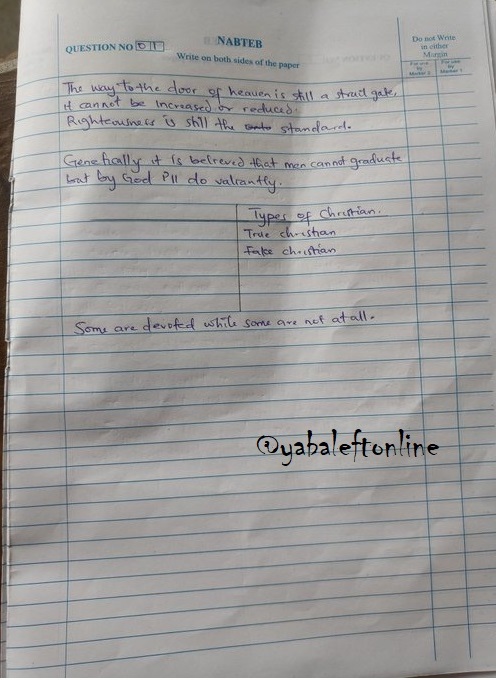 NABTEB
QUESTION NO 011
Write on both sides of the paper
Do not Write
in either
Margin
For use
by
Marker 2
For use
by
Marker 1
The way to the door of heaven is still a strait gate,
it cannot be increased or reduced.
Righteousness is still the standard.
Genetically it is believed that men cannot graduate
but by God I'll do valiantly.
Types of Christian.
True christian
Fake christian
Some are devoted while some are not at all.
@yabaleftonline